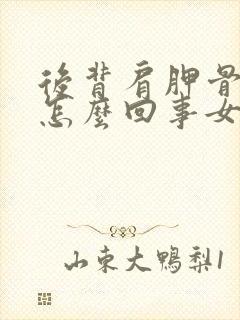 後背肩胛骨
怎麼回事女
山東大鴨梨1